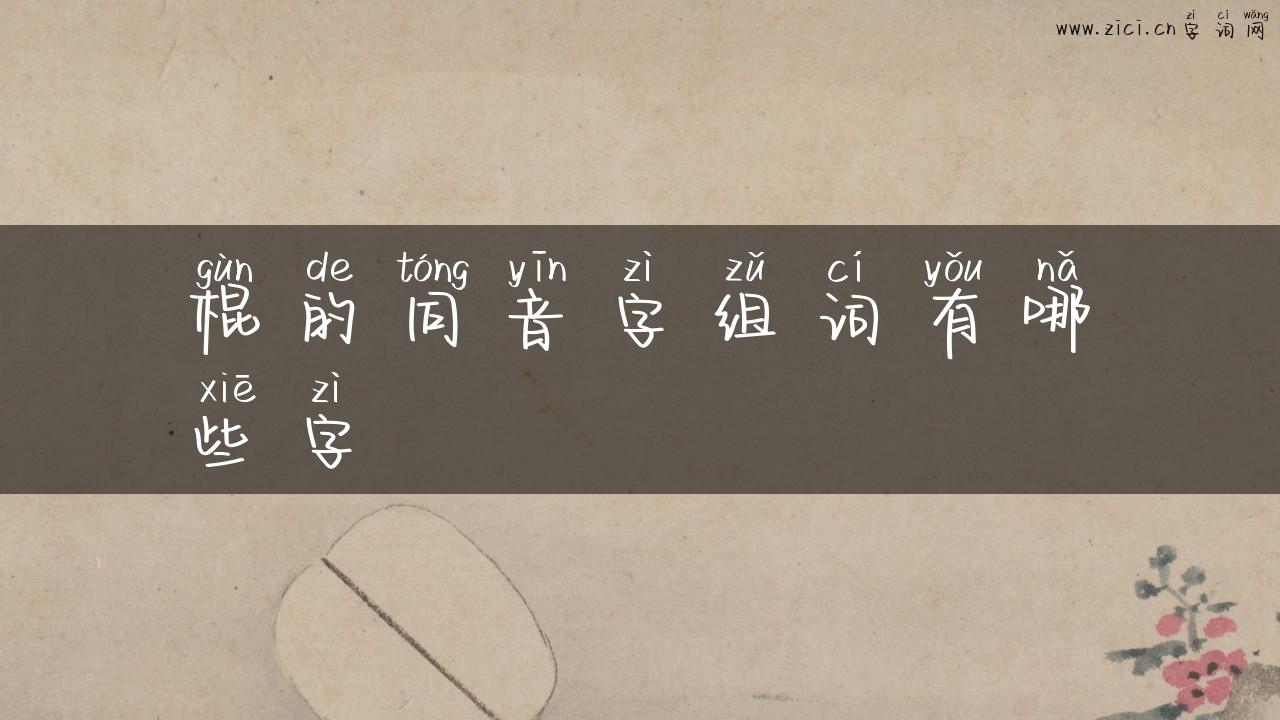 zì cí wǎng
www.zici.cn字词网
gùn de tóng yīn zì zǔ cí yǒu nǎ
棍的同音字组词有哪
xiē zì
些字